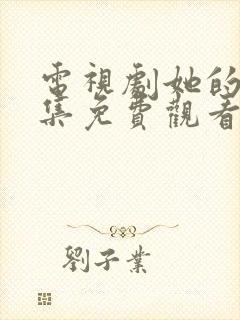 電視劇她的
集免費觀看
劉子業